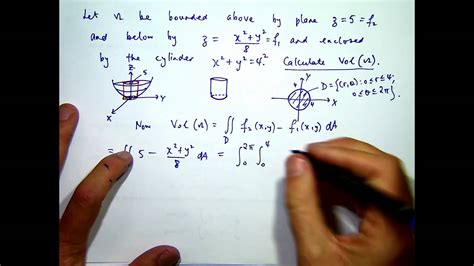 Let Ω be bounded above by plane z = 5 = f₂
and below by z = (x² + y²)/8 = f₁ and enclosed
by the cylinder x² + y² = 4². Calculate Vol(Ω).
5 Z Y X
Y 4 X D = {(r,θ): 0≤r≤4; 0≤θ≤2π}.
Now Vol(Ω) = ∬_D f₂(x,y) - f₁(x,y) dA
= ∬ 5 - (x² + y²)/8 dA = ∫₀^2π ∫₀^4